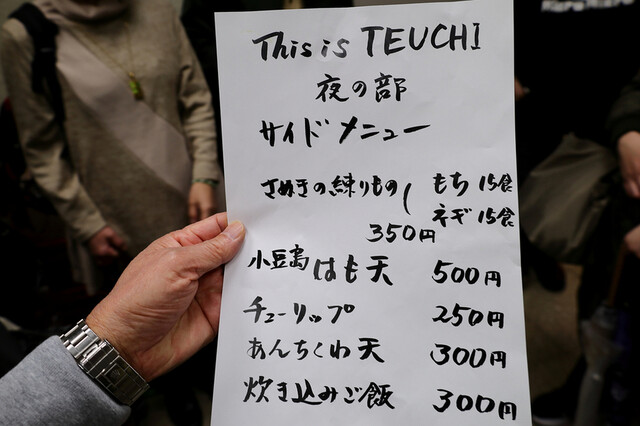 This is TEUCHI
夜の部
サイドメニュー
さぬきの練りもの ( もち 15食
ネギ 15食
350円
小豆島はも天 500円
チューリップ 250円
あんちくわ天 300円
炊き込みご飯 300円